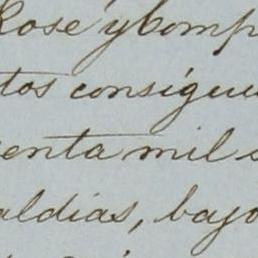 Rosé y Comp
tos consigui
enta mil s
aldias, bajo